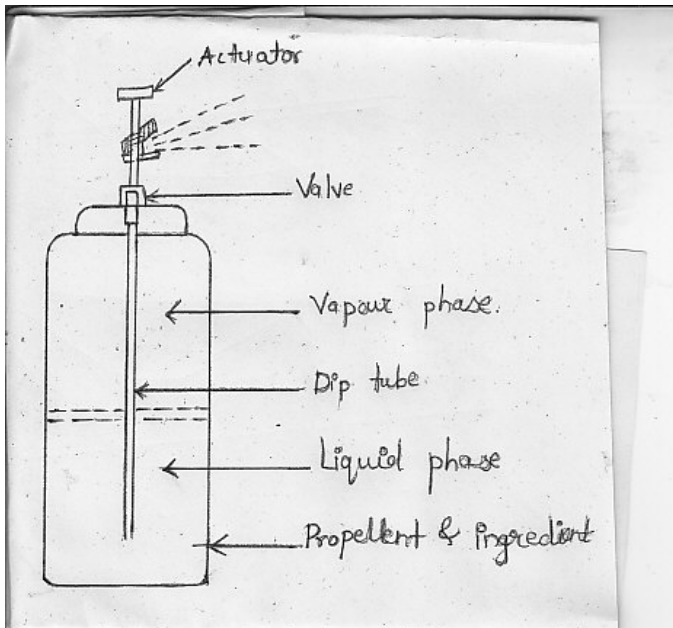 Actuator
Valve
Vapour phase.
Dip tube
Liquid phase
Propellent & ingredient